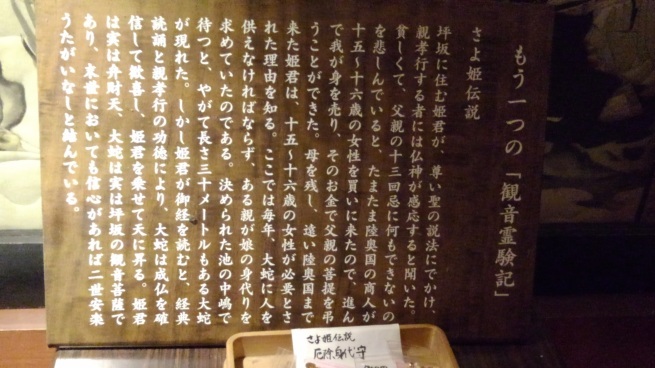 もう一つの「観音霊験記」
さよ姫伝説
坪坂に住む姫君が、尊い聖の説法にでかけ
親孝行する者には仏神が感応すると聞いた。
貧しくて、父親の十三回忌に何もできないの
を悲しんでいると、たまたま陸奥国の商人が
十五〜十六歳の女性を買いに来たので、進ん
で我が身を売り、そのお金で父親の菩提を弔
うことができた。母を残し、遠い陸奥国まで
来た姫君は、十五〜十六歳の女性が必要とさ
れた理由を知る。ここでは毎年、大蛇に人を
供えなければならず、ある親が娘の身代りを
求めていたのである。決められた池の中嶋で
待つと、やがて長さ三十メートルもある大蛇
が現れた。しかし姫君が御経を読むと、経典
読誦と親孝行の功徳により、大蛇は成仏を確
信して歓喜し、姫君を乗せて天に昇る。姫君
は実は弁財天、大蛇は実は坪坂の観音菩薩で
あり、末世においても信心があれば二世安楽
うたがいなしと結んでいる。
さよ姫伝説
厄除身代守